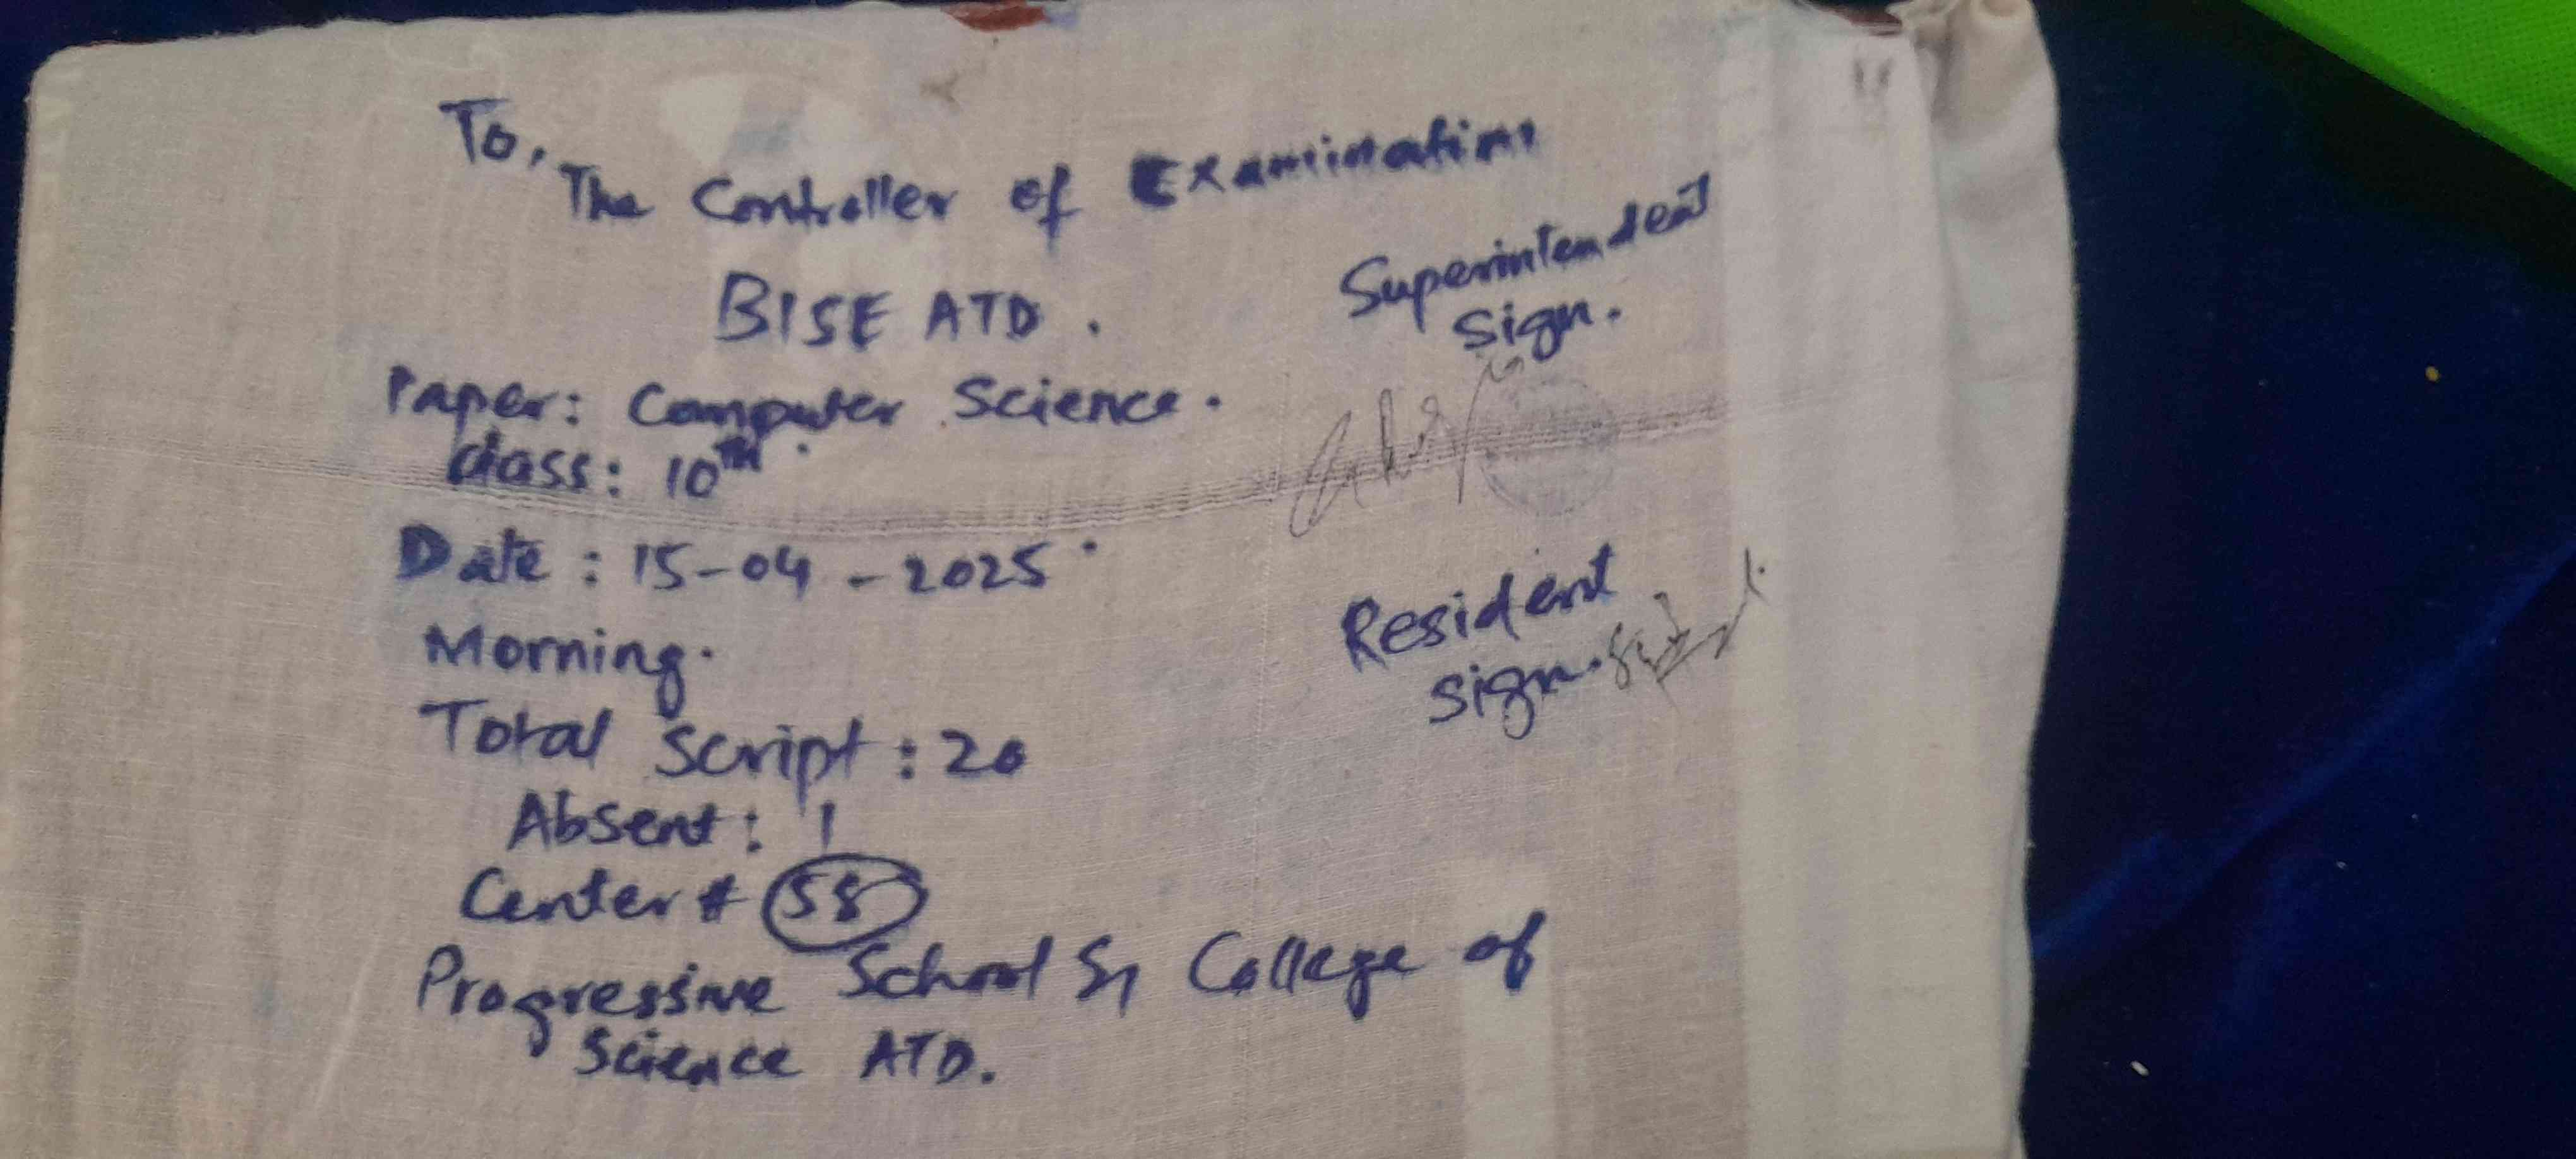 To,
The Controller of Examinations
BISE ATD.
Paper: Computer Science.
class: 10th.
Date: 15-04-2025.
Morning.
Total Script: 20
Absent: 1
Center # 58
Progressive School & College of
Science ATD.
Superintendent
Sign.
Resident
Sign.